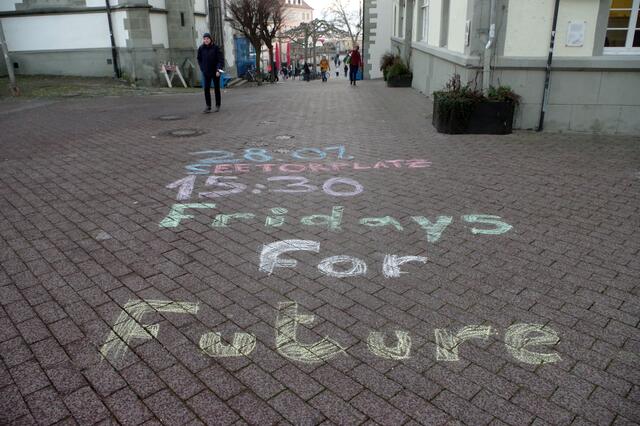 28.01.
SEETORPLATZ
15:30
Fridays
For
Future